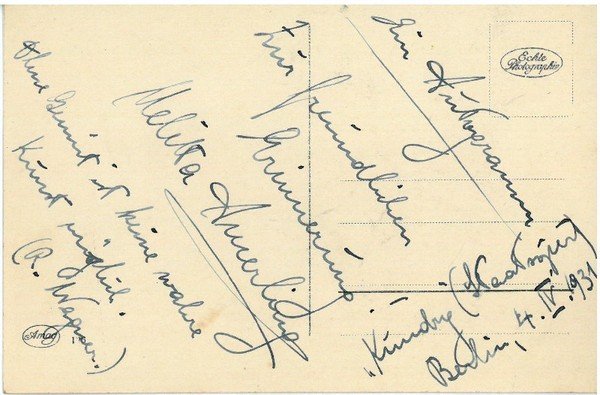 Ohne Gemüt ist keine wahre
Kunst möglich.
(R. Wagner.)
Melitta Amerling
Zur freundlichen
Erinnerung
Ein Autogramm
„Kundry" (Staatsoper)
Berlin, 4. IV. 1931
Echte
Photographie
Amag